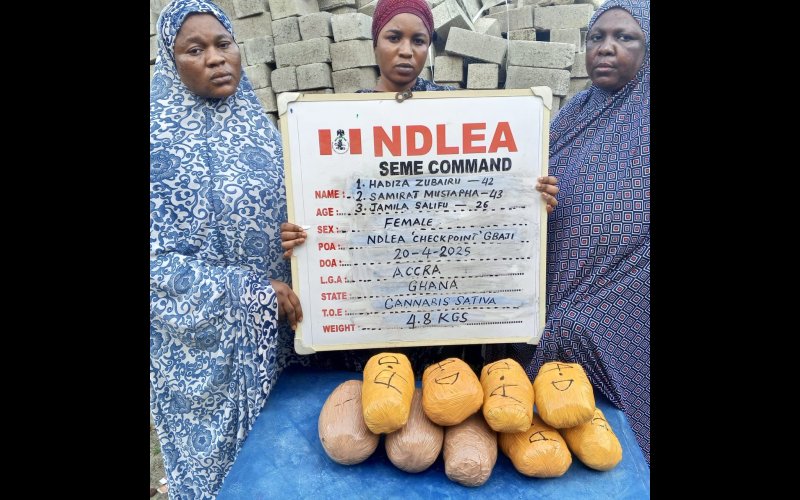 NDLEA
SEME COMMAND
NAME: 1. HADIZA ZUBAIRU — 42
2. SAMIRAT MUSTAPHA — 43
AGE: 3. JAMILA SALIFU — 26
SEX: FEMALE
POA: NDLEA 'CHECKPOINT' GBAJI
DOA: 20-4-2025
L.G.A: ACCRA
STATE: GHANA
T.O.E: CANNABIS SATIVA
WEIGHT 4.8 KGS
A.D
A.D
A.D
A.D